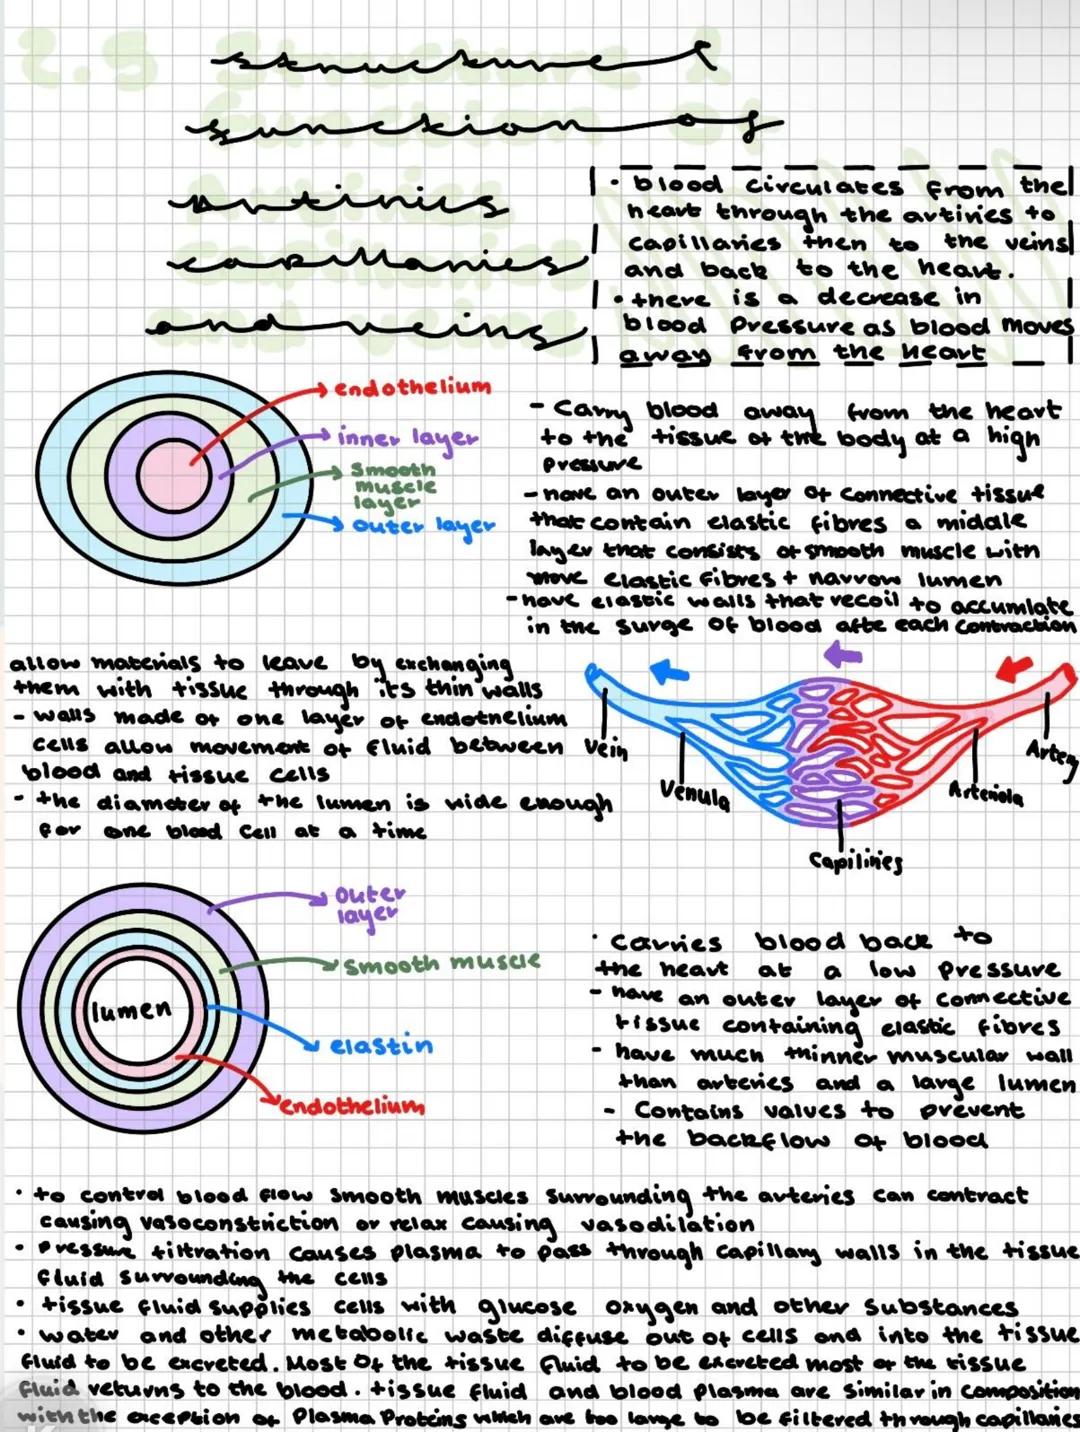 2.5 structure &
function of
artiries
capillaries
and veins
• blood circulates from the
heart through the artiries to
capillaries then to the veins
and back to the heart.
• there is a decrease in
blood pressure as blood moves
away from the heart
endothelium
inner layer
smooth
muscle
layer
outer layer
- Carry blood away from the heart
to the tissue of the body at a high
pressure
- have an outer layer of connective tissue
that contain elastic fibres a middle
layer that consists of smooth muscle with
more elastic fibres + narrow lumen
- have elastic walls that recoil to accumlate
in the surge of blood afte each contraction
allow materials to leave by exchanging
them with tissue through its thin walls
- walls made of one layer of endothelium
cells allow movement of fluid between
blood and tissue cells
- the diameter of the lumen is wide enough
for one blood cell at a time
Vein
Venula
Capilinies
Arteriola
Artery
outer
layer
smooth muscle
lumen
elastin
endothelium
· Carries blood back to
the heart at a low pressure
- have an outer layer of connective
tissue containing elastic fibres
- have much thinner muscular wall
than arteries and a large lumen
- Contains valves to prevent
the backflow of blood
• to control blood flow smooth muscles surrounding the arteries can contract
causing vasoconstriction or relax causing vasodilation
• pressure filtration causes plasma to pass through capillary walls in the tissue
fluid surrounding the cells
• tissue fluid supplies cells with glucose oxygen and other substances
• water and other metabolic waste diffuse out of cells and into the tissue
fluid to be excreted. Most of the tissue fluid to be excreted most of the tissue
fluid returns to the blood. tissue fluid and blood plasma are similar in composition
with the exception of Plasma Proteins which are too large to be filtered through capillaries